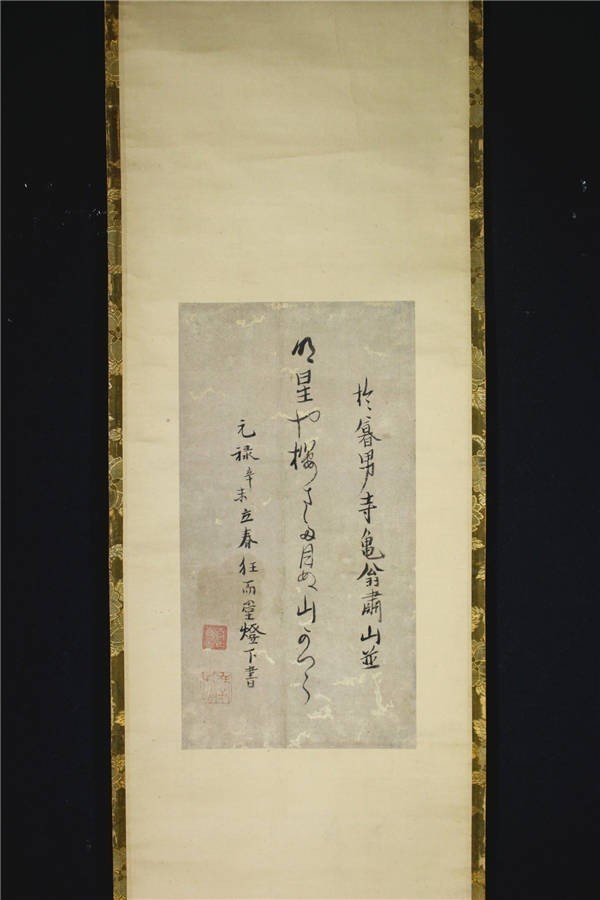 於暮男寺亀翁肅山並
明星や櫻さため ぬ山かつら
元禄辛未立春狂而堂燈下書